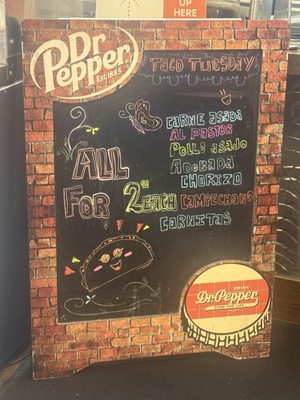 UP HERE
Dr Pepper
EST. 1885
TACO TUESDAY
CARNE ASADA
AL PASTOR
POLLO ASADO
ADOBADA
CHORIZO
CAMPECHANO
CARNITAS
ALL
FOR 2.00 EACH
DRINK
Dr.Pepper
GOOD FOR LIFE!